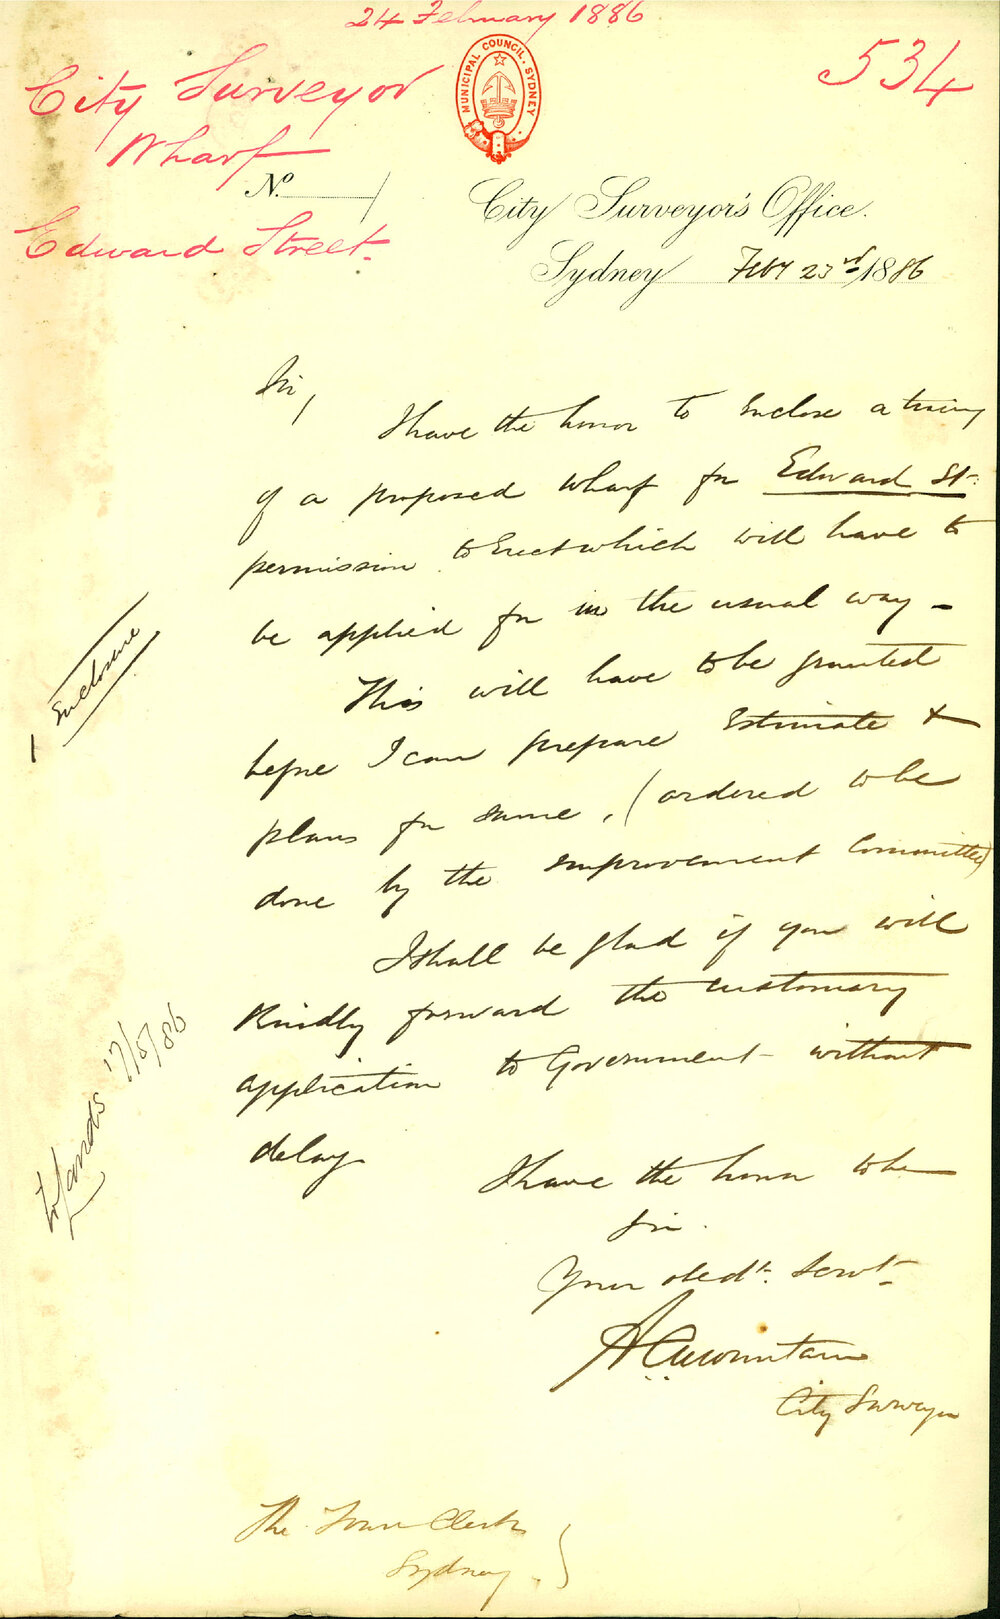 24 February 1886
534
City Surveyor
Wharf
Edward Street
MUNICIPAL COUNCIL. SYDNEY
No.
City Surveyor's Office.
Sydney Feby 23rd 1886
Sir,
I have the honor to enclose a tracing
of a proposed wharf for Edward St.
permission to erect which will have to
be applied for in the usual way -
This will have to be granted
before I can prepare Estimate &
plans for same, (ordered to be
done by the Improvement Committee)
I shall be glad if you will
Kindly forward the customary
application to Government without
delay
I have the honor to be
Sir.
Your obedt. Servt.
City Surveyor
The Town Clerk
Sydney
1 Enclosure
To Lands 17/5/86